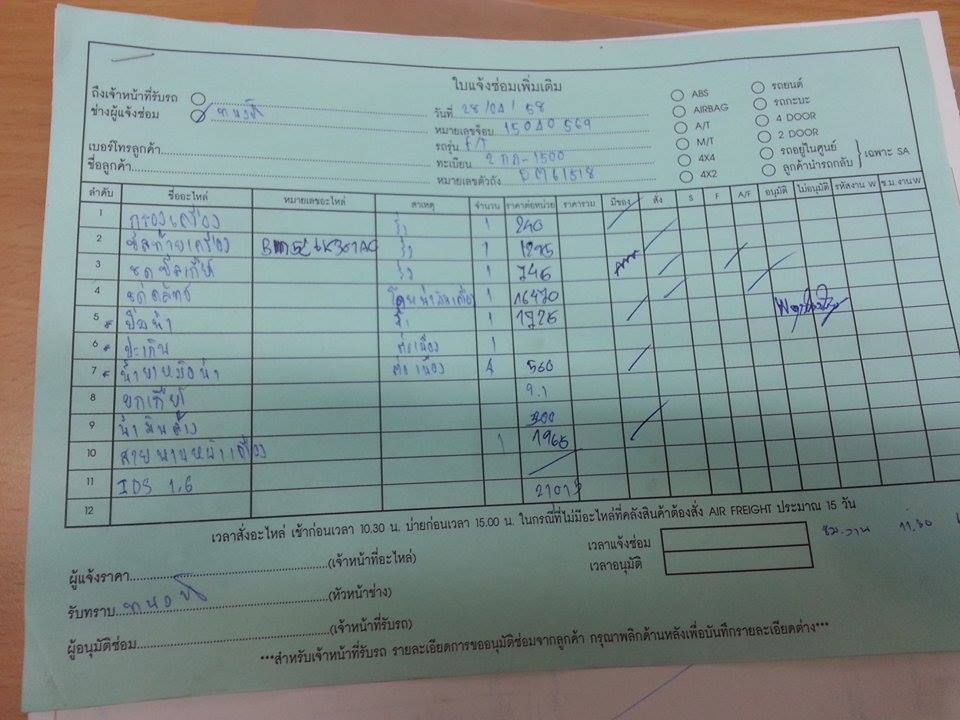 ใบแจ้งซ่อมเพิ่มเติม
ถึงเจ้าหน้าที่รับรถ
ช่างผู้แจ้งซ่อม
เบอร์โทรลูกค้า
ชื่อลูกค้า
วันที่ 28/04/58
หมายเลขจ็อบ 15040569
รถรุ่น F/T
ทะเบียน 2 กก-1500
หมายเลขตัวถัง DM61518
ABS
AIRBAG
A/T
M/T
4X4
4X2
รถยนต์
รถกะบะ
4 DOOR
2 DOOR
รถอยู่ในศูนย์
ลูกค้านำรถกลับ
เฉพาะ SA
ลำดับ ชื่ออะไหล่ หมายเลขอะไหล่ สาเหตุ จำนวน ราคาต่อหน่วย ราคารวม มีของ สั่ง S F A/F อนุมัติ ไม่อนุมัติ รหัสงาน W ช.ม. งาน W
1 กรองเครื่อง 1 240
2 ซีลท้ายเครื่อง รั่ว 1 1295
3 รั่ว 1 746
4 1 16470
5 ปั๊มน้ำ รั่ว 1 1726
6 ปะเก็น ต่อเนื่อง 1
7 น้ำยาหม้อน้ำ ต่อเนื่อง 4 560
8 ยกเกียร์
9 น้ำมันล้าง 300
10 สายพานหน้าเครื่อง 1 1965
11 IDS 1.6
12
เวลาสั่งอะไหล่ เช้าก่อนเวลา 10.30 น. บ่ายก่อนเวลา 15.00 น. ในกรณีที่ไม่มีอะไหล่ที่คลังสินค้าต้องสั่ง AIR FREIGHT ประมาณ 15 วัน
ผู้แจ้งราคา (เจ้าหน้าที่อะไหล่)
รับทราบ (หัวหน้าช่าง)
ผู้อนุมัติซ่อม (เจ้าหน้าที่รับรถ)
เวลาแจ้งซ่อม
เวลาอนุมัติ
11.30
***สำหรับเจ้าหน้าที่รับรถ รายละเอียดการขออนุมัติซ่อมจากลูกค้า กรุณาพลิกด้านหลังเพื่อบันทึกรายละเอียดต่างๆ***